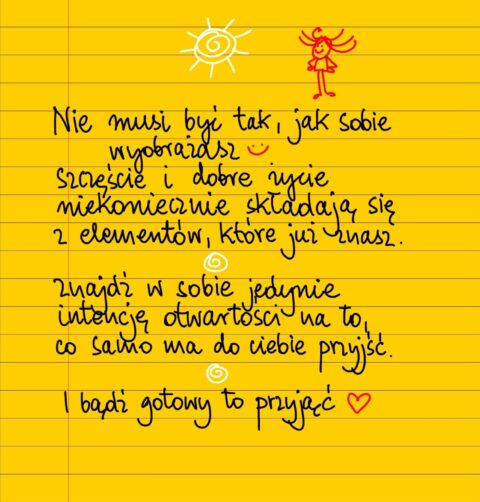 Nie musi być tak, jak sobie
wyobrażasz
szczęście i dobre życie
niekoniecznie składają się
z elementów, które już znasz.
znajdź w sobie jedynie
intencję otwartości na to,
co samo ma do ciebie przyjść.
I bądź gotowy to przyjąć